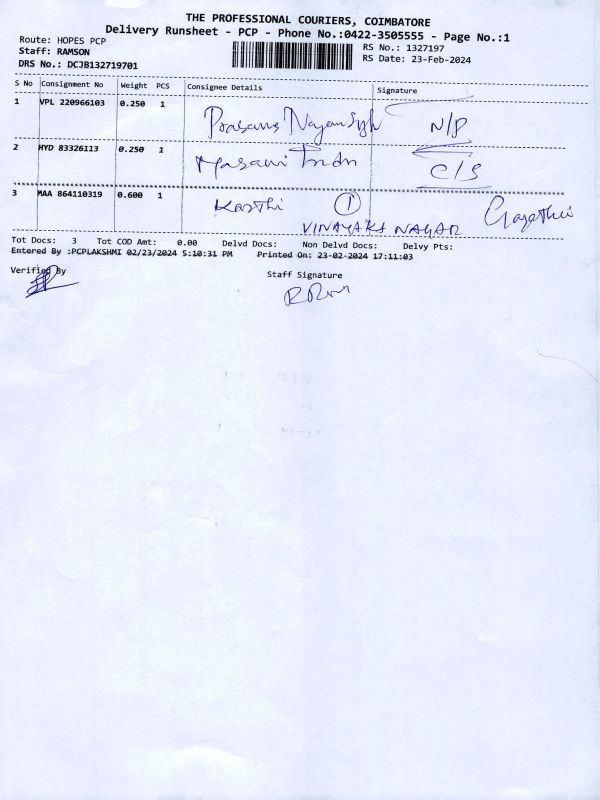 THE PROFESSIONAL COURIERS, COIMBATORE
Delivery Runsheet - PCP - Phone No.:0422-3505555 - Page No.:1
Route: HOPES PCP
RS No.: 1327197
Staff: RAMSON
RS Date: 23-Feb-2024
DRS No.: DCJB132719701
S No Consignment No Weight PCS Consignee Details Signature
1 VPL 220966103 0.250 1 N/P
2 HYD 83326113 0.250 1 C/S
3 MAA 864110319 0.600 1 Karthi 1
VINAYAKA NAGAR
Tot Docs: 3 Tot COD Amt: 0.00 Delvd Docs: Non Delvd Docs: Delvy Pts:
Entered By :PCPLAKSHMI 02/23/2024 5:10:31 PM Printed On: 23-02-2024 17:11:03
Verified By
Staff Signature